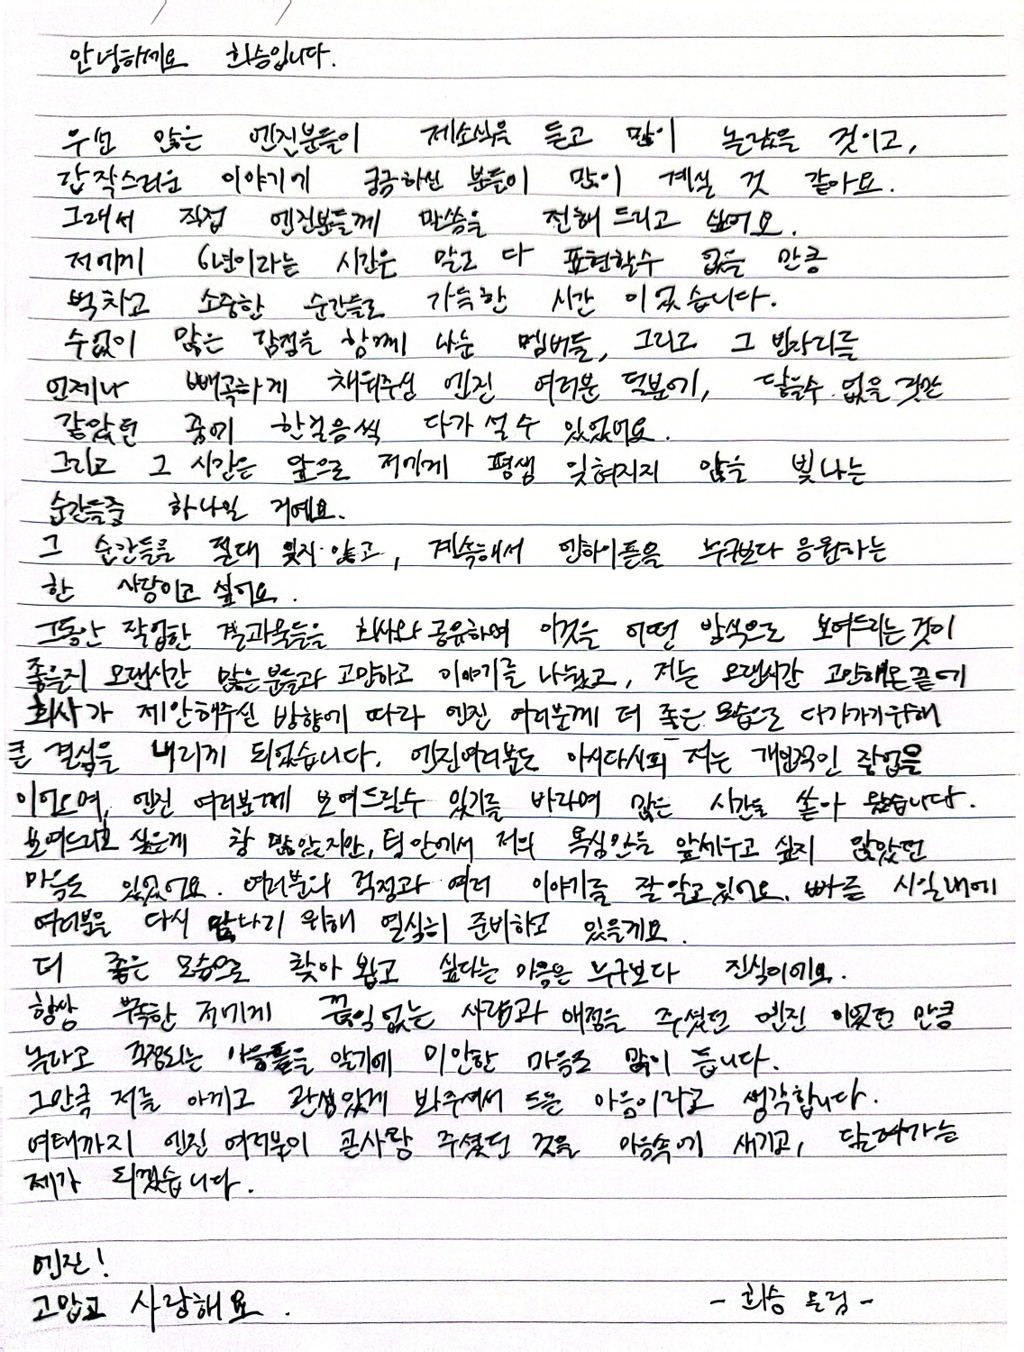 안녕하세요 희승입니다.
우선 많은 엔진분들이 제소식을 듣고 많이 놀랐을 것이고,
갑작스러운 이야기에 궁금하신 분들이 많이 계실 것 같아요.
그래서 직접 엔진분들께 말씀을 전해 드리고 싶어요.
저에게 6년이라는 시간은 말로 다 표현할수 없을 만큼
벅차고 소중한 순간들로 가득한 시간 이었습니다.
수없이 많은 감정을 함께 나눈 멤버들, 그리고 그 빈자리를
언제나 빼곡하게 채워주신 엔진 여러분 덕분에, 닿을수 없을 것만
같았던 꿈에 한걸음씩 다가 설 수 있었어요.
그리고 그 시간은 앞으로 저에게 평생 잊혀지지 않을 빛나는
순간들중 하나일 거예요.
그 순간들을 절대 잊지 않고, 계속해서 엔하이픈을 누구보다 응원하는
한 사람이고 싶어요.
그동안 작업한 결과물들을 회사와 공유하며 이것을 어떤 방식으로 보여드리는 것이
좋을지 오랜시간 많은 분들과 고민하고 이야기를 나눴고, 저는 오랜시간 고민해온 끝에
회사가 제안해주신 방향에 따라 엔진 여러분께 더 좋은 모습으로 다가가기 위해
큰 결심을 내리게 되었습니다. 엔진여러분도 아시다시피 저는 개인적인 작업을
이어오며, 엔진 여러분께 보여드릴수 있기를 바라며 많은 시간을 쏟아 왔습니다.
보여드리고 싶은게 참 많았지만, 팀 안에서 저의 욕심만을 앞세우고 싶지 않았던
마음도 있었어요. 여러분의 걱정과 여러 이야기를 잘 알고 있어요. 빠른 시일내에
여러분을 다시 만나기 위해 열심히 준비하고 있을게요.
더 좋은 모습으로 찾아 뵙고 싶다는 마음은 누구보다 진심이에요.
항상 부족한 저에게 끊임 없는 사랑과 애정을 주셨던 엔진 이었던 만큼
놀라고 걱정되는 마음들을 알기에 미안한 마음도 많이 듭니다.
그만큼 저를 아끼고 관심있게 봐주셔서 드는 마음이라고 생각합니다.
여태까지 엔진 여러분이 큰사랑 주셨던 것을 마음속에 새기고, 달려가는
제가 되겠습니다.
엔진!
고맙고 사랑해요.
- 희승 올림 -